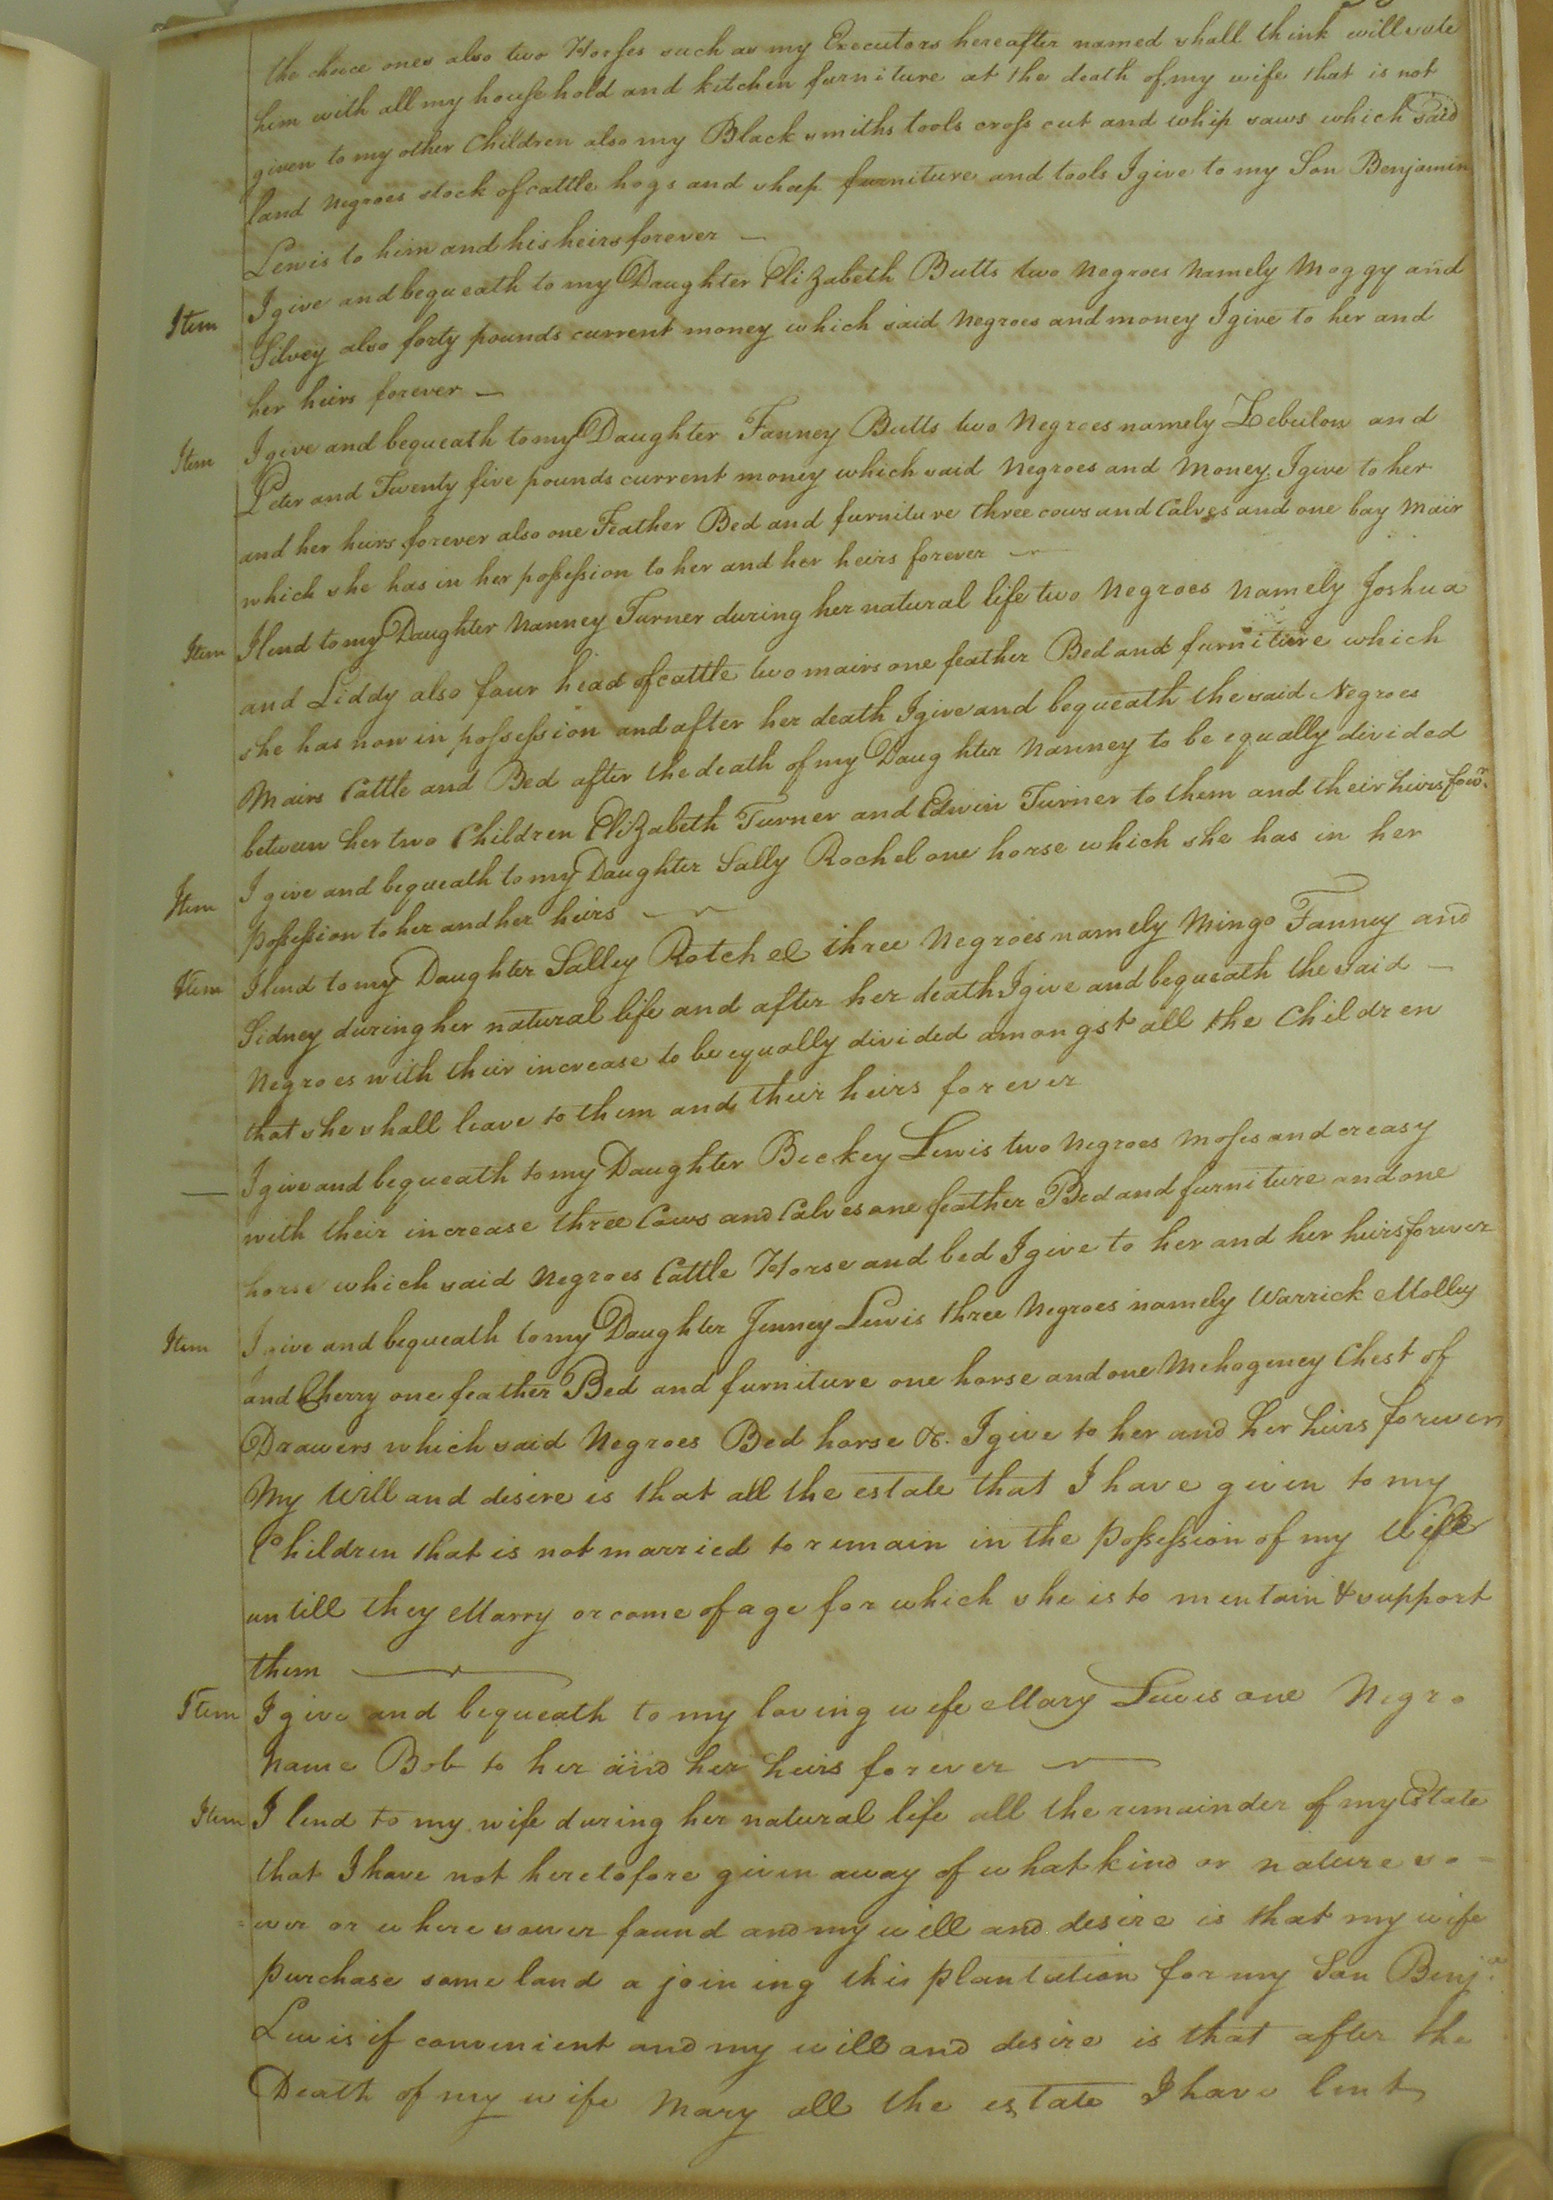 the choice ones also two Horses such as my Executors hereafter named shall think will sute
him with all my household and kitchen furniture at the death of my wife that is not
given to my other Children also my Black smiths tools cross cut and whip saws which said
land Negroes stock of cattle hogs and sheep furniture and tools I give to my Son Benjamin
Lewis to him and his heirs forever —
Item I give and bequeath to my Daughter Elizabeth Butts two Negroes Namely Moggy and
Silvey also forty pounds current money which said Negroes and money I give to her and
her heirs forever —
Item I give and bequeath to my Daughter Fanney Butts two Negroes namely Zebulon and
Peter and Twenty five pounds current money which said Negroes and Money I give to her
and her heirs forever also one Feather Bed and furniture three cows and Calves and one bay Mair
which she has in her possession to her and her heirs forever —
Item I lend to my Daughter Nanney Turner during her natural life two Negroes Namely Joshua
and Liddy also four head of cattle two mairs one feather Bed and furniture which
she has now in possession and after her death I give and bequeath the said Negroes
Mairs Cattle and Bed after the death of my Daughter Nanney to be equally divided
between her two Children Elizabeth Turner and Edwin Turner to them and their heirs
Item I give and bequeath to my Daughter Sally Rochel one horse which she has in her
possession to her and her heirs —
Item I lend to my Daughter Salley Rotchel three Negroes namely Mingo Fanney and
Sidney during her natural life and after her death I give and bequeath the said —
Negroes with their increase to be equally divided amongst all the Children
that she shall leave to them and their heirs forever
— I give and bequeath to my Daughter Beckey Lewis two Negroes Moses and creasy
with their increase three Cows and Calves one feather Bed and furniture and one
horse which said Negroes Cattle Horse and bed I give to her and her heirs forever
Item I give and bequeath to my Daughter Jenney Lewis three Negroes namely Warrick Molley
and Cherry one feather Bed and furniture one horse and one Mehogeney Chest of
Drawers which said Negroes Bed horse &c. I give to her and her heirs forever
My Will and desire is that all the estate that I have given to my
Children that is not married to remain in the possession of my Wife
untill they Marry or come of age for which she is to mentain & support
them —
Item I give and bequeath to my loving wife Mary Lewis one Negro
Name Bob to her and her heirs forever —
Item I lend to my wife during her natural life all the remainder of my Estate
that I have not heretofore given away of what kind or nature so =
= ever or where soever found and my will and desire is that my wife
purchase some land a joining this plantation for my Son Benj.ª
Lewis if convenient and my will and desire is that after the
Death of my wife Mary all the estate I have lent